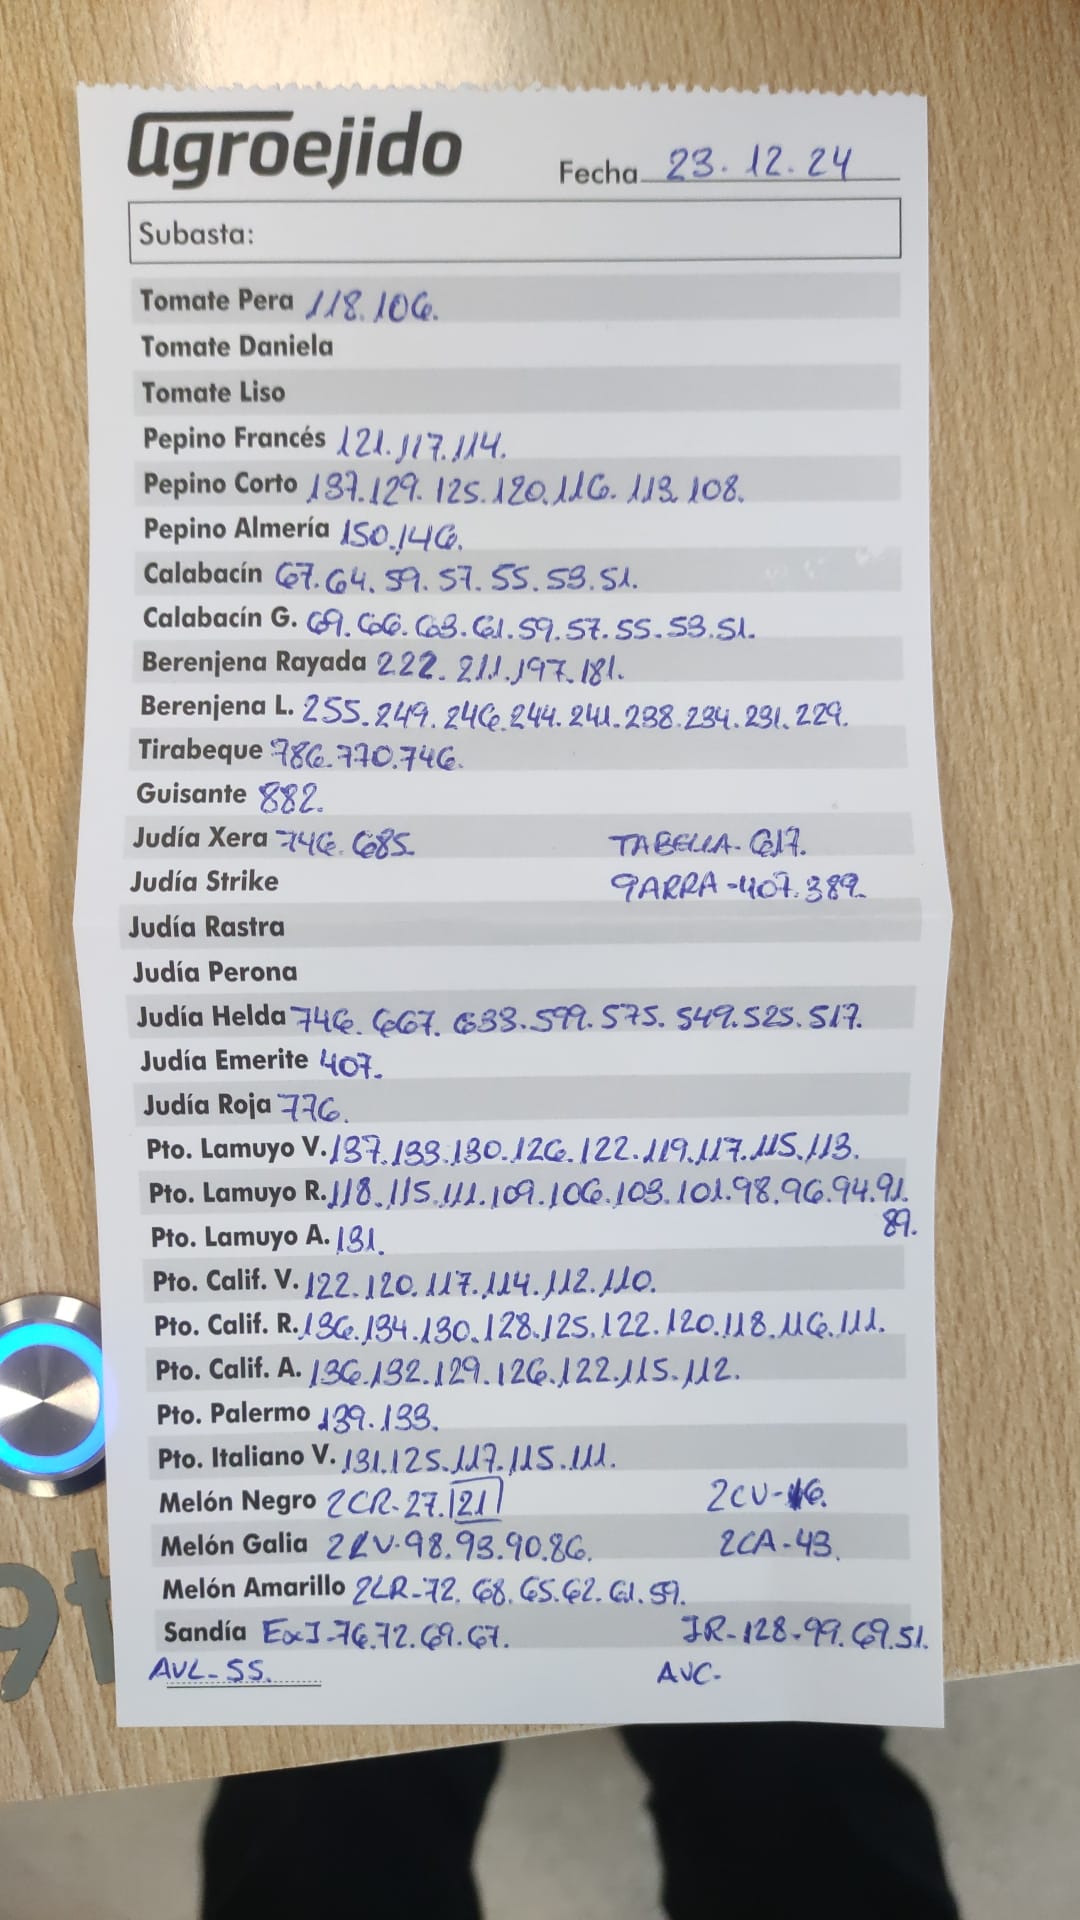 agroejido
Fecha 23.12.24
Subasta:
Tomate Pera 118.106.
Tomate Daniela
Tomate Liso
Pepino Francés 121.117.114.
Pepino Corto 137.129.125.120.116.113.108.
Pepino Almería 150.146.
Calabacín 67.64.59.57.55.53.51.
Calabacín G. 69.66.63.61.59.57.55.53.51.
Berenjena Rayada 222.211.197.181.
Berenjena L. 255.249.246.244.241.238.234.231.229.
Tirabeque 786.770.746.
Guisante 882.
Judía Xera 746.685. TABELLA-617.
Judía Strike GARRA-407.389.
Judía Rastra
Judía Perona
Judía Helda 746.667.633.599.575.549.525.517.
Judía Emerite 407.
Judía Roja 776.
Pto. Lamuyo V. 137.133.130.126.122.119.117.115.113.
Pto. Lamuyo R. 118.115.111.109.106.103.101.98.96.94.91.
89.
Pto. Lamuyo A. 131.
Pto. Calif. V. 122.120.117.114.112.110.
Pto. Calif. R. 136.134.130.128.125.122.120.118.116.111.
Pto. Calif. A. 136.132.129.126.122.115.112.
Pto. Palermo 139.133.
Pto. Italiano V. 131.125.117.115.111.
Melón Negro 2CR-27.21 2CV-16.
Melón Galia 2LV-98.93.90.86. 2CA-43.
Melón Amarillo 2LR-72.68.65.62.61.59.
Sandía ExJ-76.72.69.67. JR-128-99.69.51.
AVL-55. AVC-